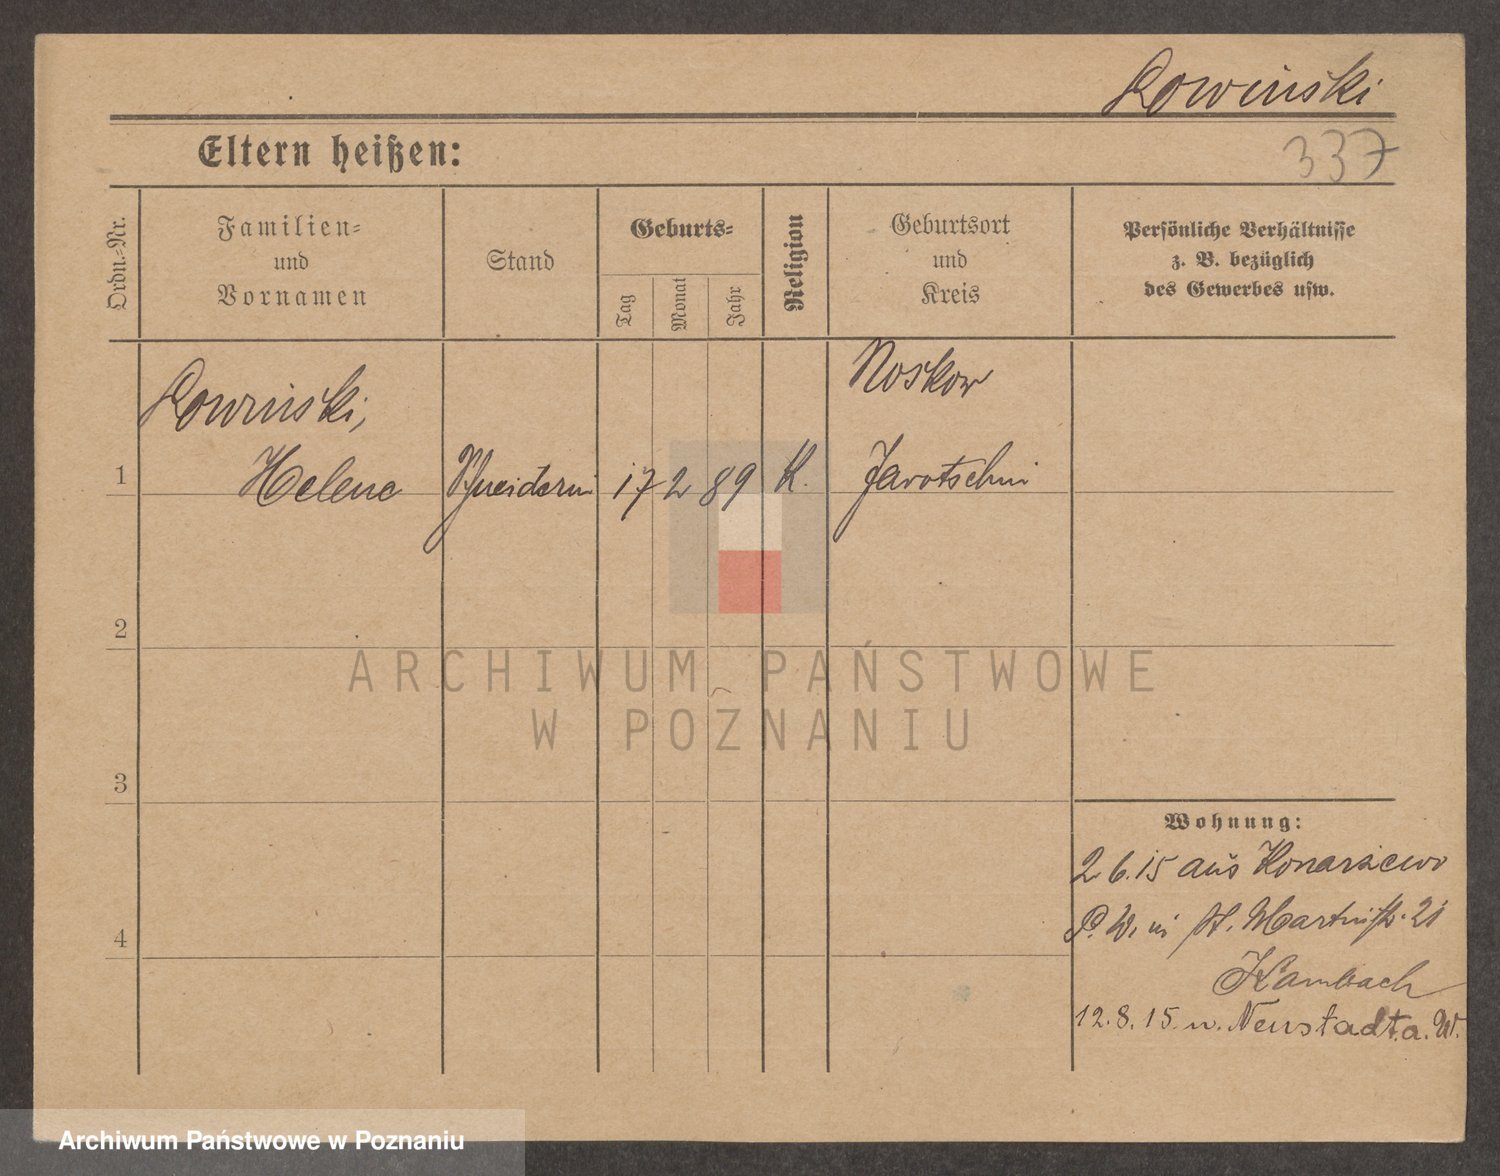 Lowinski
337
Eltern heißen:
Ordn.-Nr.
Familien-
und
Vornamen
Stand
Geburts-
Tag
Monat
Jahr
Religion
Geburtsort
und
Kreis
Persönliche Verhältnisse
z. B. bezüglich
des Gewerbes usw.
Lowinski,
Noskow
1 Helene Schneiderin 17 2 89 K. Jarotschin
2
ARCHIWUM PAŃSTWOWE
W POZNANIU
3
Wohnung:
2 6. 15 aus Konarzewo
P. W. in St. Martinstr. 21
Hambach
4
12. 8. 15. n. Neustadt a. W.
Archiwum Państwowe w Poznaniu